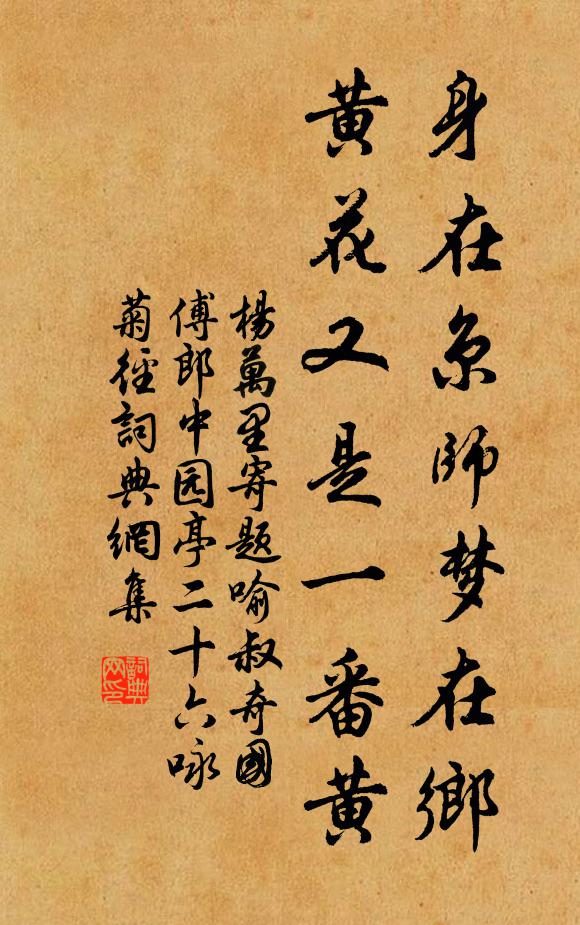 身在京师梦在鄉
黄花又是一番黄
楊萬里寄題喻叔奇國
傅郎中园亭二十六咏
菊徑詞典網集
詞典网印